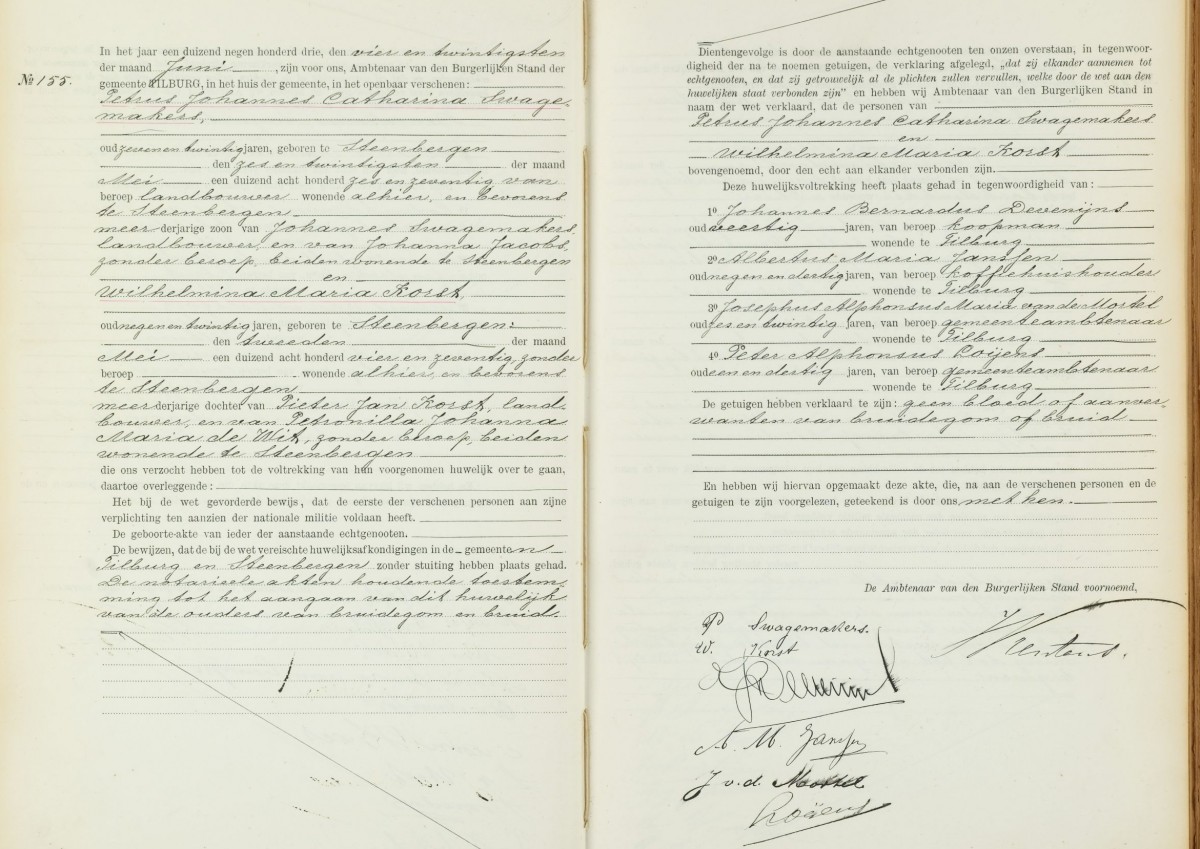 In het jaar een duizend negen honderd drie, den vier en twintigsten
der maand Juni, zijn voor ons, Ambtenaar van den Burgerlijken Stand der
No 155.
gemeente TILBURG, in het huis der gemeente, in het openbaar verschenen:
Petrus Johannes Catharina Swage-
makers,
oud zeven en twintig jaren, geboren te Steenbergen
den zes en twintigsten der maand
Mei een duizend acht honderd zes en zeventig van
beroep landbouwer wonende alhier, en bevorens
te Steenbergen
meerderjarige zoon van Johannes Swagemakers,
landbouwer, en van Johanna Jacobs,
zonder beroep, beiden wonende te Steenbergen
en
Wilhelmina Maria Korst,
oud negen en twintig jaren, geboren te Steenbergen:
den tweeden der maand
Mei een duizend acht honderd vier en zeventig, zonder
beroep wonende alhier, en bevorens
te Steenbergen
meerderjarige dochter van Pieter Jan Korst, land-
bouwer, en van Petronilla Johanna
Maria de Wit, zonder beroep, beiden
wonende te Steenbergen
die ons verzocht hebben tot de voltrekking van hun voorgenomen huwelijk over te gaan,
daartoe overleggende:
Het bij de wet gevorderde bewijs, dat de eerste der verschenen personen aan zijne
verplichting ten aanzien der nationale militie voldaan heeft.
De geboorte-akte van ieder der aanstaande echtgenooten.
De bewijzen, dat de bij de wet vereischte huwelijksafkondigingen in de gemeenten
Tilburg en Steenbergen zonder stuiting hebben plaats gehad.
De notarieele akten houdende toestem-
ming tot het aangaan van dit huwelijk
van de ouders van bruidegom en bruid.
Dientengevolge is door de aanstaande echtgenooten ten onzen overstaan, in tegenwoor-
digheid der na te noemen getuigen, de verklaring afgelegd, „dat zij elkander aannemen tot
echtgenooten, en dat zij getrouwelijk al de plichten zullen vervullen, welke door de wet aan den
huwelijken staat verbonden zijn" en hebben wij Ambtenaar van den Burgerlijken Stand in
naam der wet verklaard, dat de personen van
Petrus Johannes Catharina Swagemakers
en
Wilhelmina Maria Korst
bovengenoemd, door den echt aan elkander verbonden zijn.
Deze huwelijksvoltrekking heeft plaats gehad in tegenwoordigheid van:
1o Johannes Bernardus Devenijns
oud veertig jaren, van beroep koopman
wonende te Tilburg
2o Albertus Maria Janssen
oud negen en dertig jaren, van beroep koffiehuishouder
wonende te Tilburg
3o Josephus Alphonsus Maria van de Mortel
oud zes en twintig jaren, van beroep gemeenteambtenaar
wonende te Tilburg
4o Peter Alphonsus Roijens
oud een en dertig jaren, van beroep gemeenteambtenaar
wonende te Tilburg
De getuigen hebben verklaard te zijn: geen bloed of aanver-
wanten van bruidegom of bruid
En hebben wij hiervan opgemaakt deze akte, die, na aan de verschenen personen en de
getuigen te zijn voorgelezen, geteekend is door ons met hen.
De Ambtenaar van den Burgerlijken Stand voornoemd,
P Swagemakers.
W. Korst
A. M. Janssen
J v. d. Mortel
Roijens